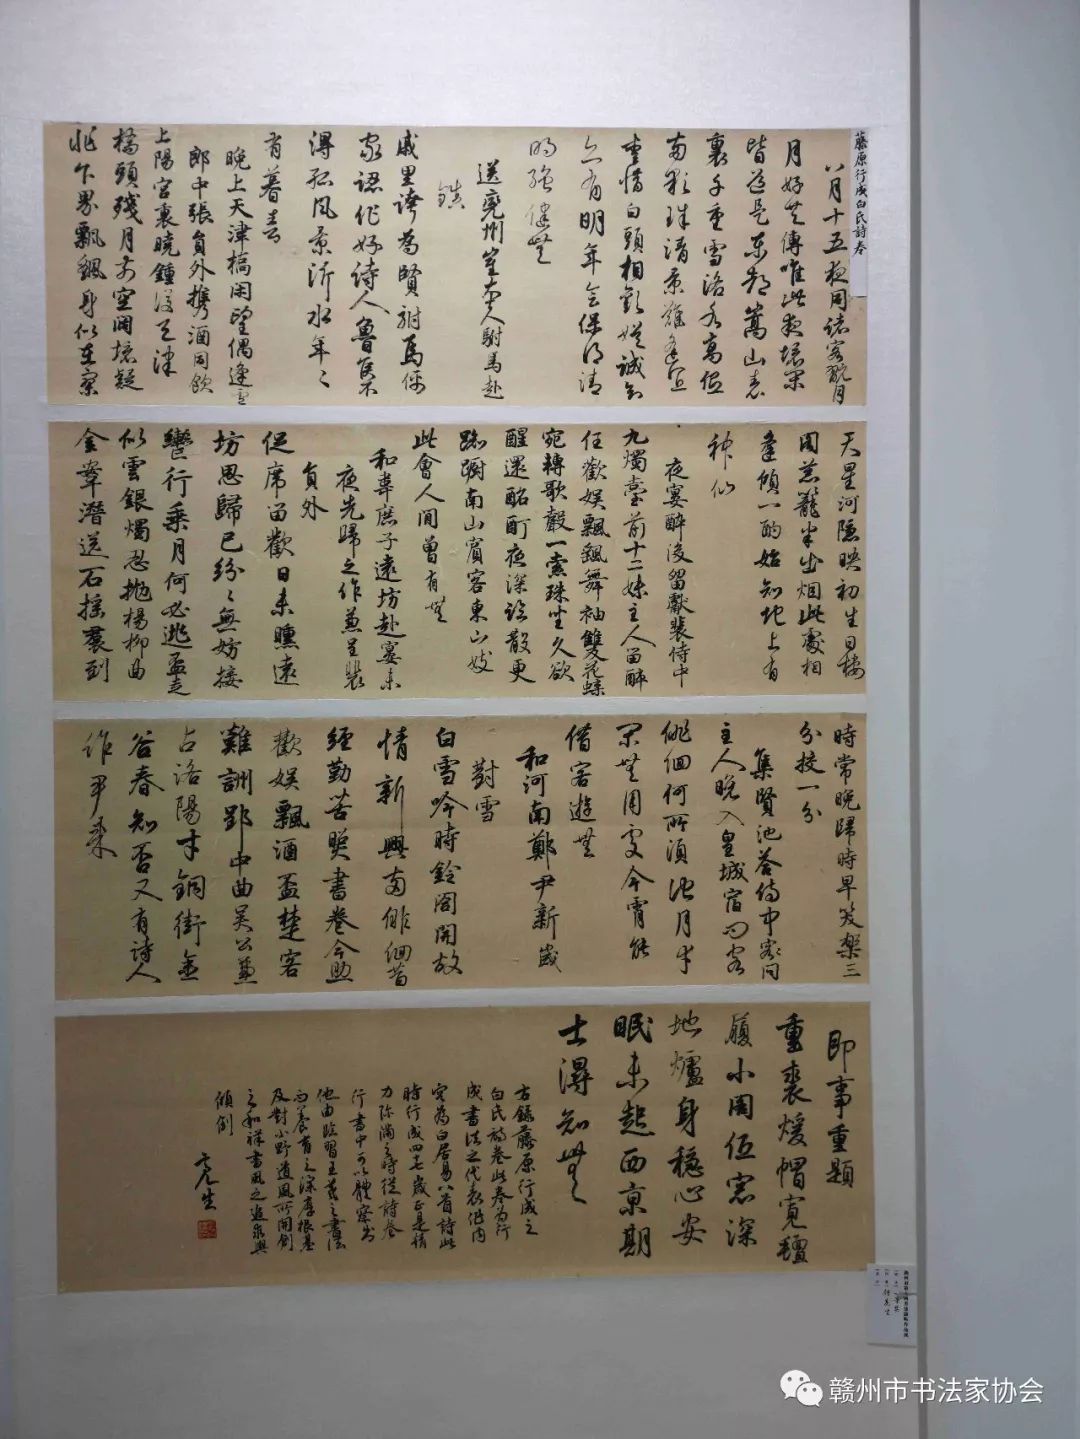 藤原行成白氏詩卷
八月十五夜同諸客翫月
月好共傳唯此夜境閑
皆道是東都嵩山表
裏千重雪洛水高低
兩顆珠清景難逢宜
愛惜白頭相勸
亦有明年會保得清
明強健無
送兗州崔大夫駙馬赴
鎮
戚里誇為賢駙馬儒
家認作好詩人魯侯不
得孤風景沂水年々
有暮春
晚上天津橋閑望偶逢
郎中張員外携酒同飲
上陽宮裏曉鐘後天津
橋頭殘月前空闊境疑
非下界飄飄身似在寥
天星河隱映初生日樓
閣蔥蘢半出烟此處相
逢傾一酌始知地上有
神仙
夜宴醉後留獻裴侍中
九燭臺前十二姝主人留醉
任歡娛飄飄舞袖雙飛蝶
宛轉歌聲一索珠坐久欲
醒還酩酊夜深臨散更
踟躕南山賓客東山妓
此會人間曾有無
和韋庶子遠坊赴宴未
夜先歸之作兼呈裴
員外
促席留歡日未曛遠
坊思歸已紛々無妨按
轡行乘月何必逃盃走
似雲銀燭忍拋楊柳曲
金鞍潛送石榴裙到
時常晚歸時早笑樂三
分校一分
集賢池答侍中家問
主人晚入皇城宿問客
俳佪何所須池月幸
閑無用處今宵能
借客遊無
和河南鄭尹新歲
對雪
白雪吟時鈴閣開故
情新興兩俳佪昔
經勤苦照書卷今助
歡娛飄酒盃楚客
難詶郢中曲吳公兼
占洛陽才銅街金
谷春知否又有詩人
作尹來
即事重題
重裘煖帽寬氈
履小閣低窓深
地爐身穩心安
眠未起西京期
士得知無
古錄藤原行成之
白氏詩卷此卷為行
成書法之代表作内
容為白居易八首詩此
時行成四七歲正是精
力弥滿之時從詩卷
行書中可以體察出
他由臨習王羲之書法
而養育之深厚根基
及對小野道風所開創
之和祥書風之追求與
傾倒
赣州市书法家协会